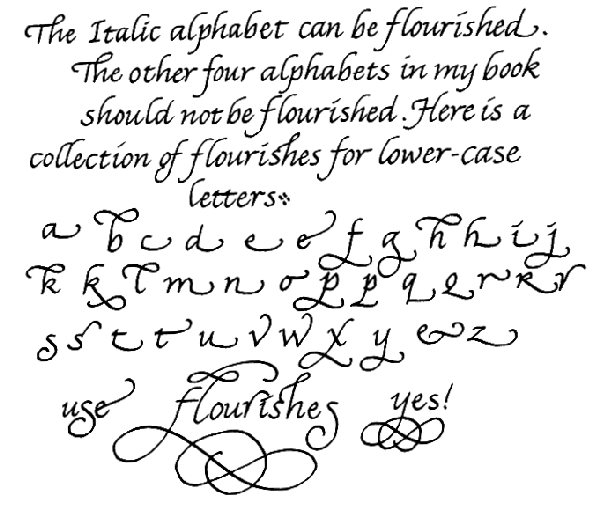 The Italic alphabet can be flourished.
The other four alphabets in my book
should not be flourished. Here is a
collection of flourishes for lower-case
letters
a b c d e e f g h h i j
k k l m n o p p q q r k r
s s t t u v w x y e z
use flourishes yes!